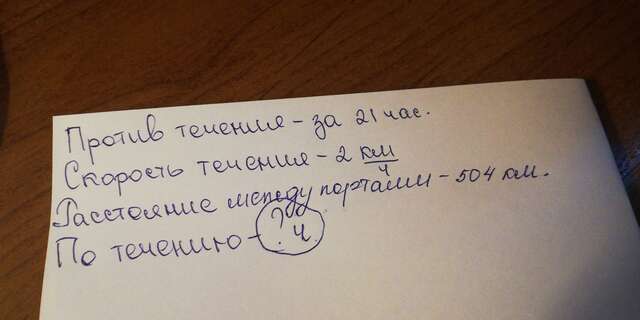 Против течения – за 21 час.
Скорость течения – 2 км/ч
Расстояние между портами – 504 км.
По течению – ? ч.